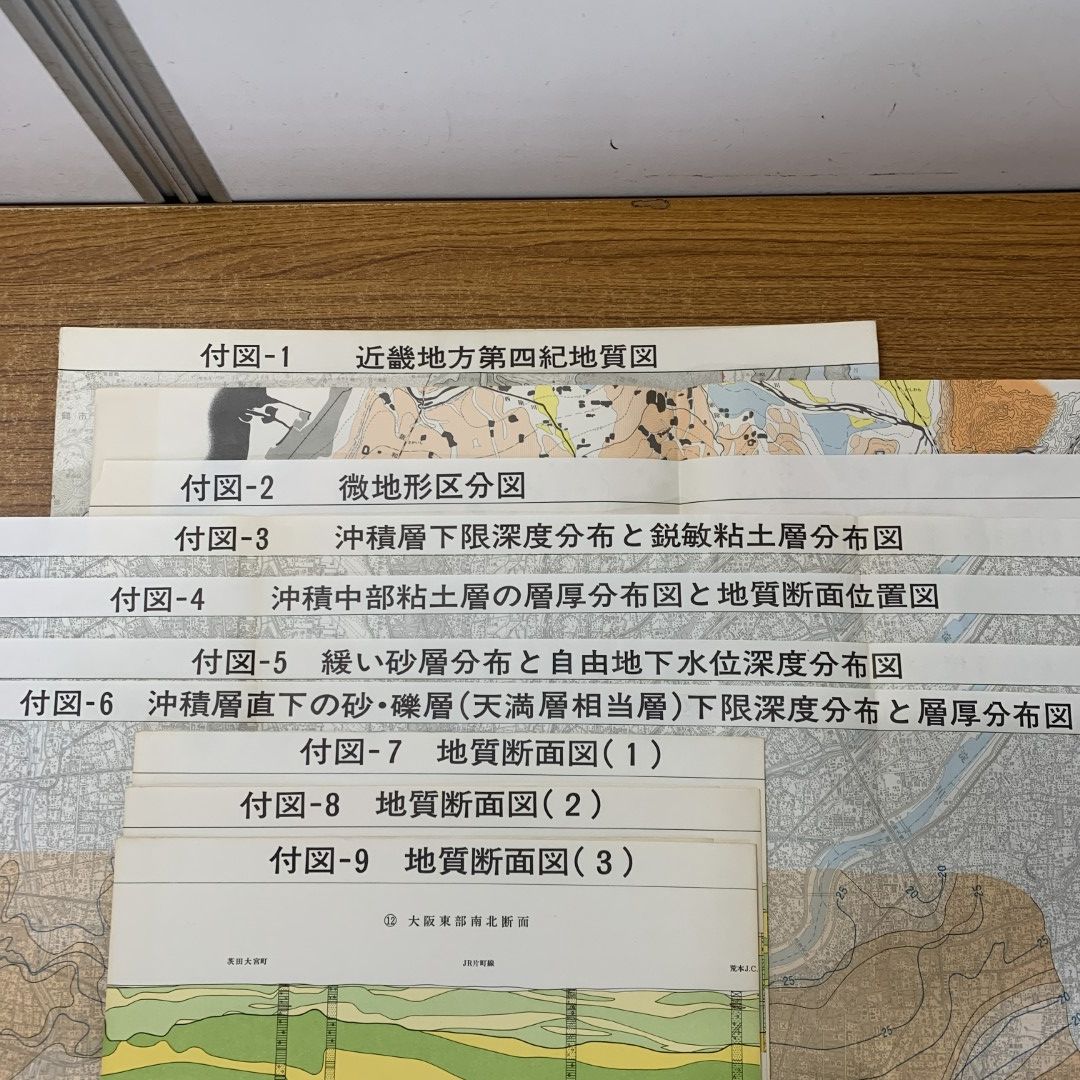 付図-1 近畿地方第四紀地質図
付図-2 微地形区分図
付図-3 沖積層下限深度分布と鋭敏粘土層分布図
付図-4 沖積中部粘土層の層厚分布図と地質断面位置図
付図-5 緩い砂層分布と自由地下水位深度分布図
付図-6 沖積層直下の砂・礫層(天満層相当層)下限深度分布と層厚分布図
付図-7 地質断面図(1)
付図-8 地質断面図(2)
付図-9 地質断面図(3)
⑫ 大阪東部南北断面
茨田大宮町 JR片町線 荒本J.C.
25
20
25
25
20
25